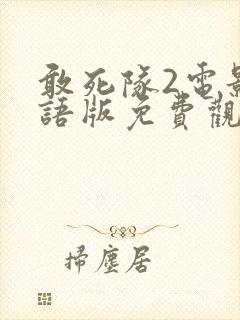 敢死隊2電影
語版免費觀
掃塵居